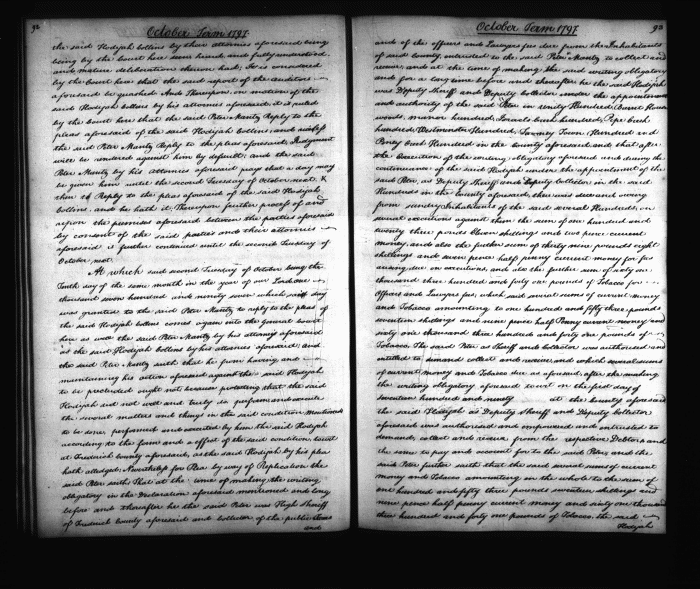 92
October Term 1797
the said Hodijah Collins by their attornies aforesaid being
being by the Court here seen heard and fully understood
and mature deliberation thereon had, It is considered
by the Court here that the said report of the auditors
aforesaid be quashed. And Thereupon on motion of the
said Hodijah Collins by his attornies aforesaid, it is ruled
by the Court here that the said Peter Mantz Reply to the
pleas aforesaid of the said Hodijah Collins, and unless
the said Peter Mantz Reply to the pleas aforesaid, Judgment
will be entered against him by default; and the said
Peter Mantz by his attornies aforesaid prays that a day may
be given him until the second Tuesday of October next, &
then to Reply to the pleas aforesaid of the said Hodijah
Collins, and he hath it: Thereupon further process of and
upon the premises aforesaid between the parties aforesaid
by consent of the said parties and their attornies
aforesaid is further continued until the second Tuesday of
October next
At which said second Tuesday of October being the
Tenth day of the same month in the year of our Lord one
thousand seven hundred and ninety seven which said day
was granted to the said Peter Mantz to reply to the pleas of
the said Hodijah Collins comes again into the general Court
here as well the said Peter Mantz by his attornies aforesaid
as the said Hodijah Collins by his attornies aforesaid and
the said Peter Mantz saith that he from having and
maintaining his action aforesaid against the said Hodijah
to be precluded ought not because protesting that the said
Hodijah did not well and truly perform and execute
the several matters and things in the said condition mentioned
to be done, performed and executed by him the said Hodijah
according to the form and effect of the said condition, to wit
at Frederick County aforesaid, as the said Hodijah by his plea
hath alledged; Nevertheless for Plea by way of Replication the
said Peter saith That at the time of making the writing
obligatory in the Declaration aforesaid mentioned and long
before and thereafter he the said Peter was High Sheriff
of Frederick County aforesaid and Collector of the public Taxes
and
October Term 1797
93
and of the officers and Lawyers fees due from the Inhabitants
of said County, intrusted to the said Peter Mantz to collect and
receive, and at the time of making the said writing obligatory
and for a long time before and thereafter he the said Hodijah
was Deputy Sheriff and Deputy Collector under the appointment
and authority of the said Peter in Unity Hundred, Burnt House
woods, manor hundred, Israels Creek hundred, Pipe Creek
hundred, Westminster Hundred, Tawney Town Hundred and
Piney Creek Hundred in the County aforesaid and that after
the Execution of the writing obligatory aforesaid and during the
continuance of the said Hodijah under the appointment of the
said Peter, as Deputy Sheriff and Deputy Collector in the said
Hundreds in the County aforesaid, there were due and owing
from sundry Inhabitants of the said several Hundreds, on
several executions against them the sum of one hundred and
twenty three pounds Eleven shillings and two pence current
money, and also the further sum of thirty nine pounds eight
shillings and seven pence half penny current money for fees
accruing due on executions, and also the further sum of sixty one
thousand three hundred and forty one pounds of Tobacco for
Officers and Lawyers fees, which said several sums of current money
and Tobacco amounting to one hundred and fifty three pounds
seventeen shillings and nine pence half Penny current money and
sixty one thousand three hundred and forty one pounds of
Tobacco. The said Peter as Sheriff and Collector was authorised and
entitled to demand collect and receive, and which several sums
of current money and Tobacco due as aforesaid, after the making
the writing obligatory aforesaid to wit on the first day of
seventeen hundred and ninety at the County aforesaid
the said Hodijah as Deputy Sheriff and Deputy Collector
aforesaid was authorised and empowered and intrusted to
demand, collect and receive from the respective Debtors and
the same to pay and account for to the said Peter, and the
said Peter further saith that the said several sums of current
money and Tobacco amounting in the whole to the sum of
one hundred and fifty three pounds seventeen shillings and
nine pence half penny current money and sixty one thousand
three hundred and forty one pounds of Tobacco, the said
Hodijah